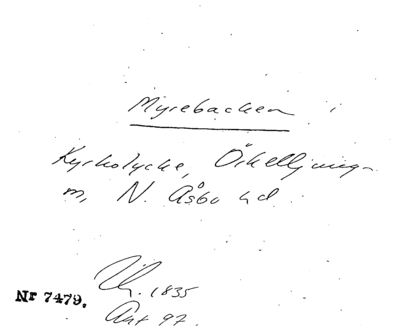 Myrebacken
Kyrkolycke, Örkelljunga
m, N. Åsbo hd.
1835
Nr 7479.
Akt 97.